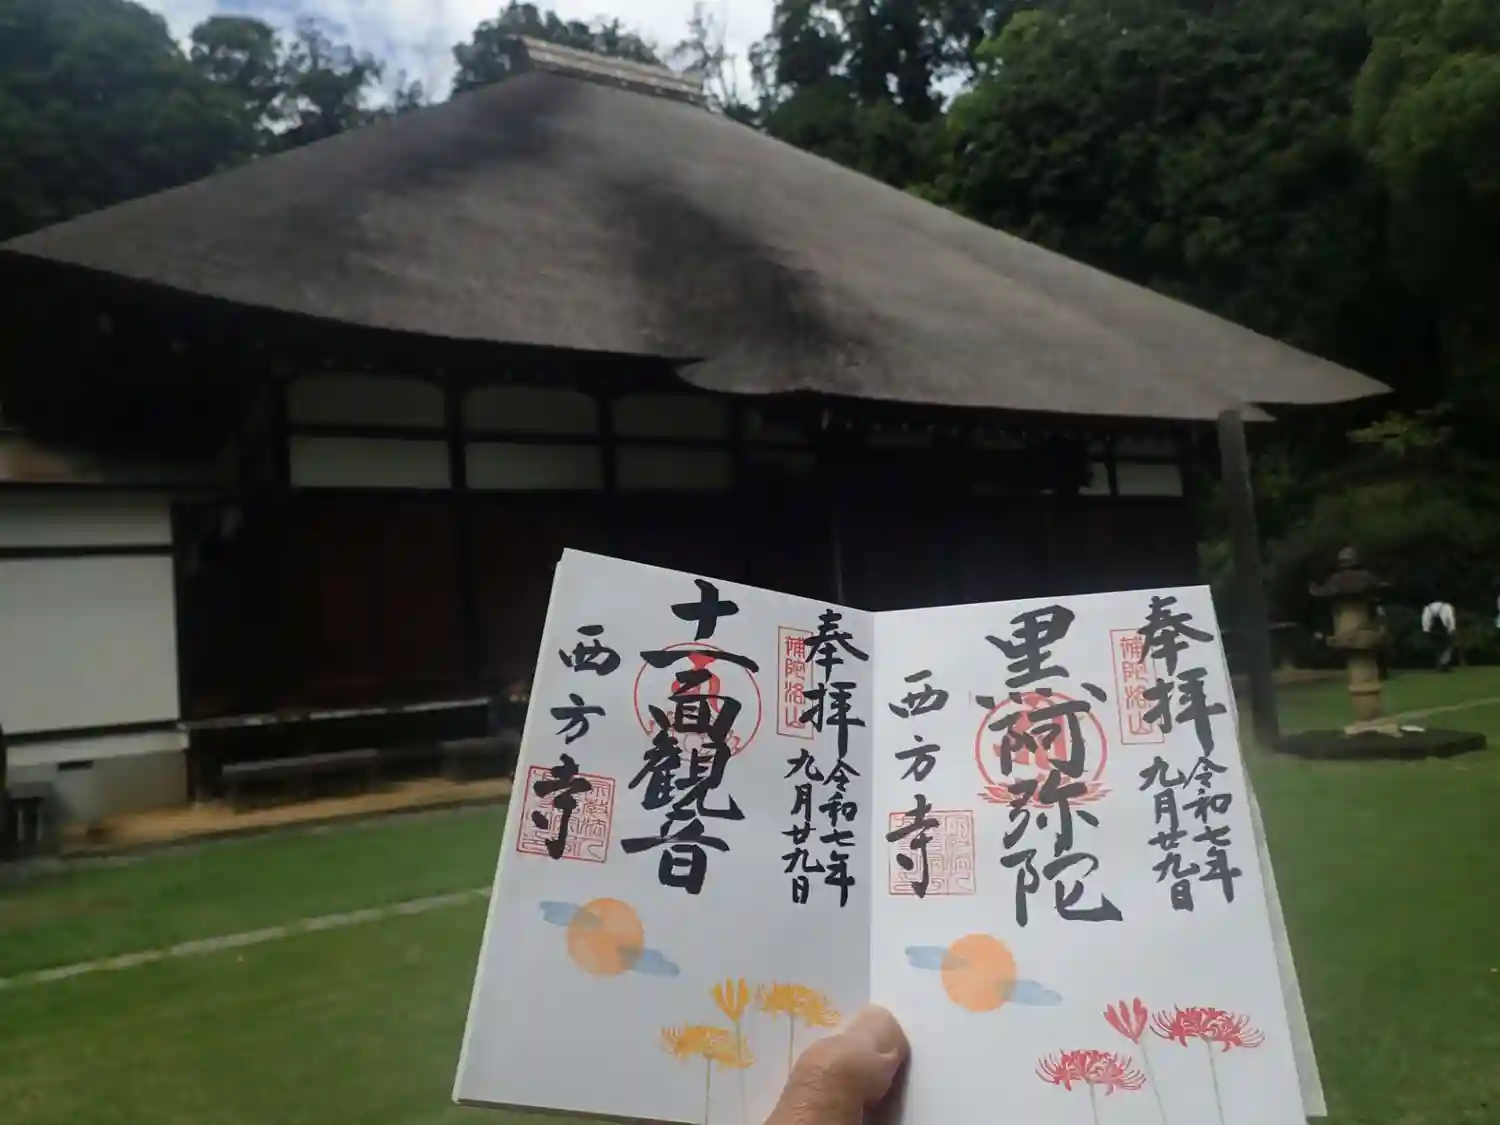 奉拝
令和七年
九月廿九日
補陀洛山
黒阿弥陀
西方寺
奉拝
令和七年
九月廿九日
補陀洛山
十一面観音
西方寺